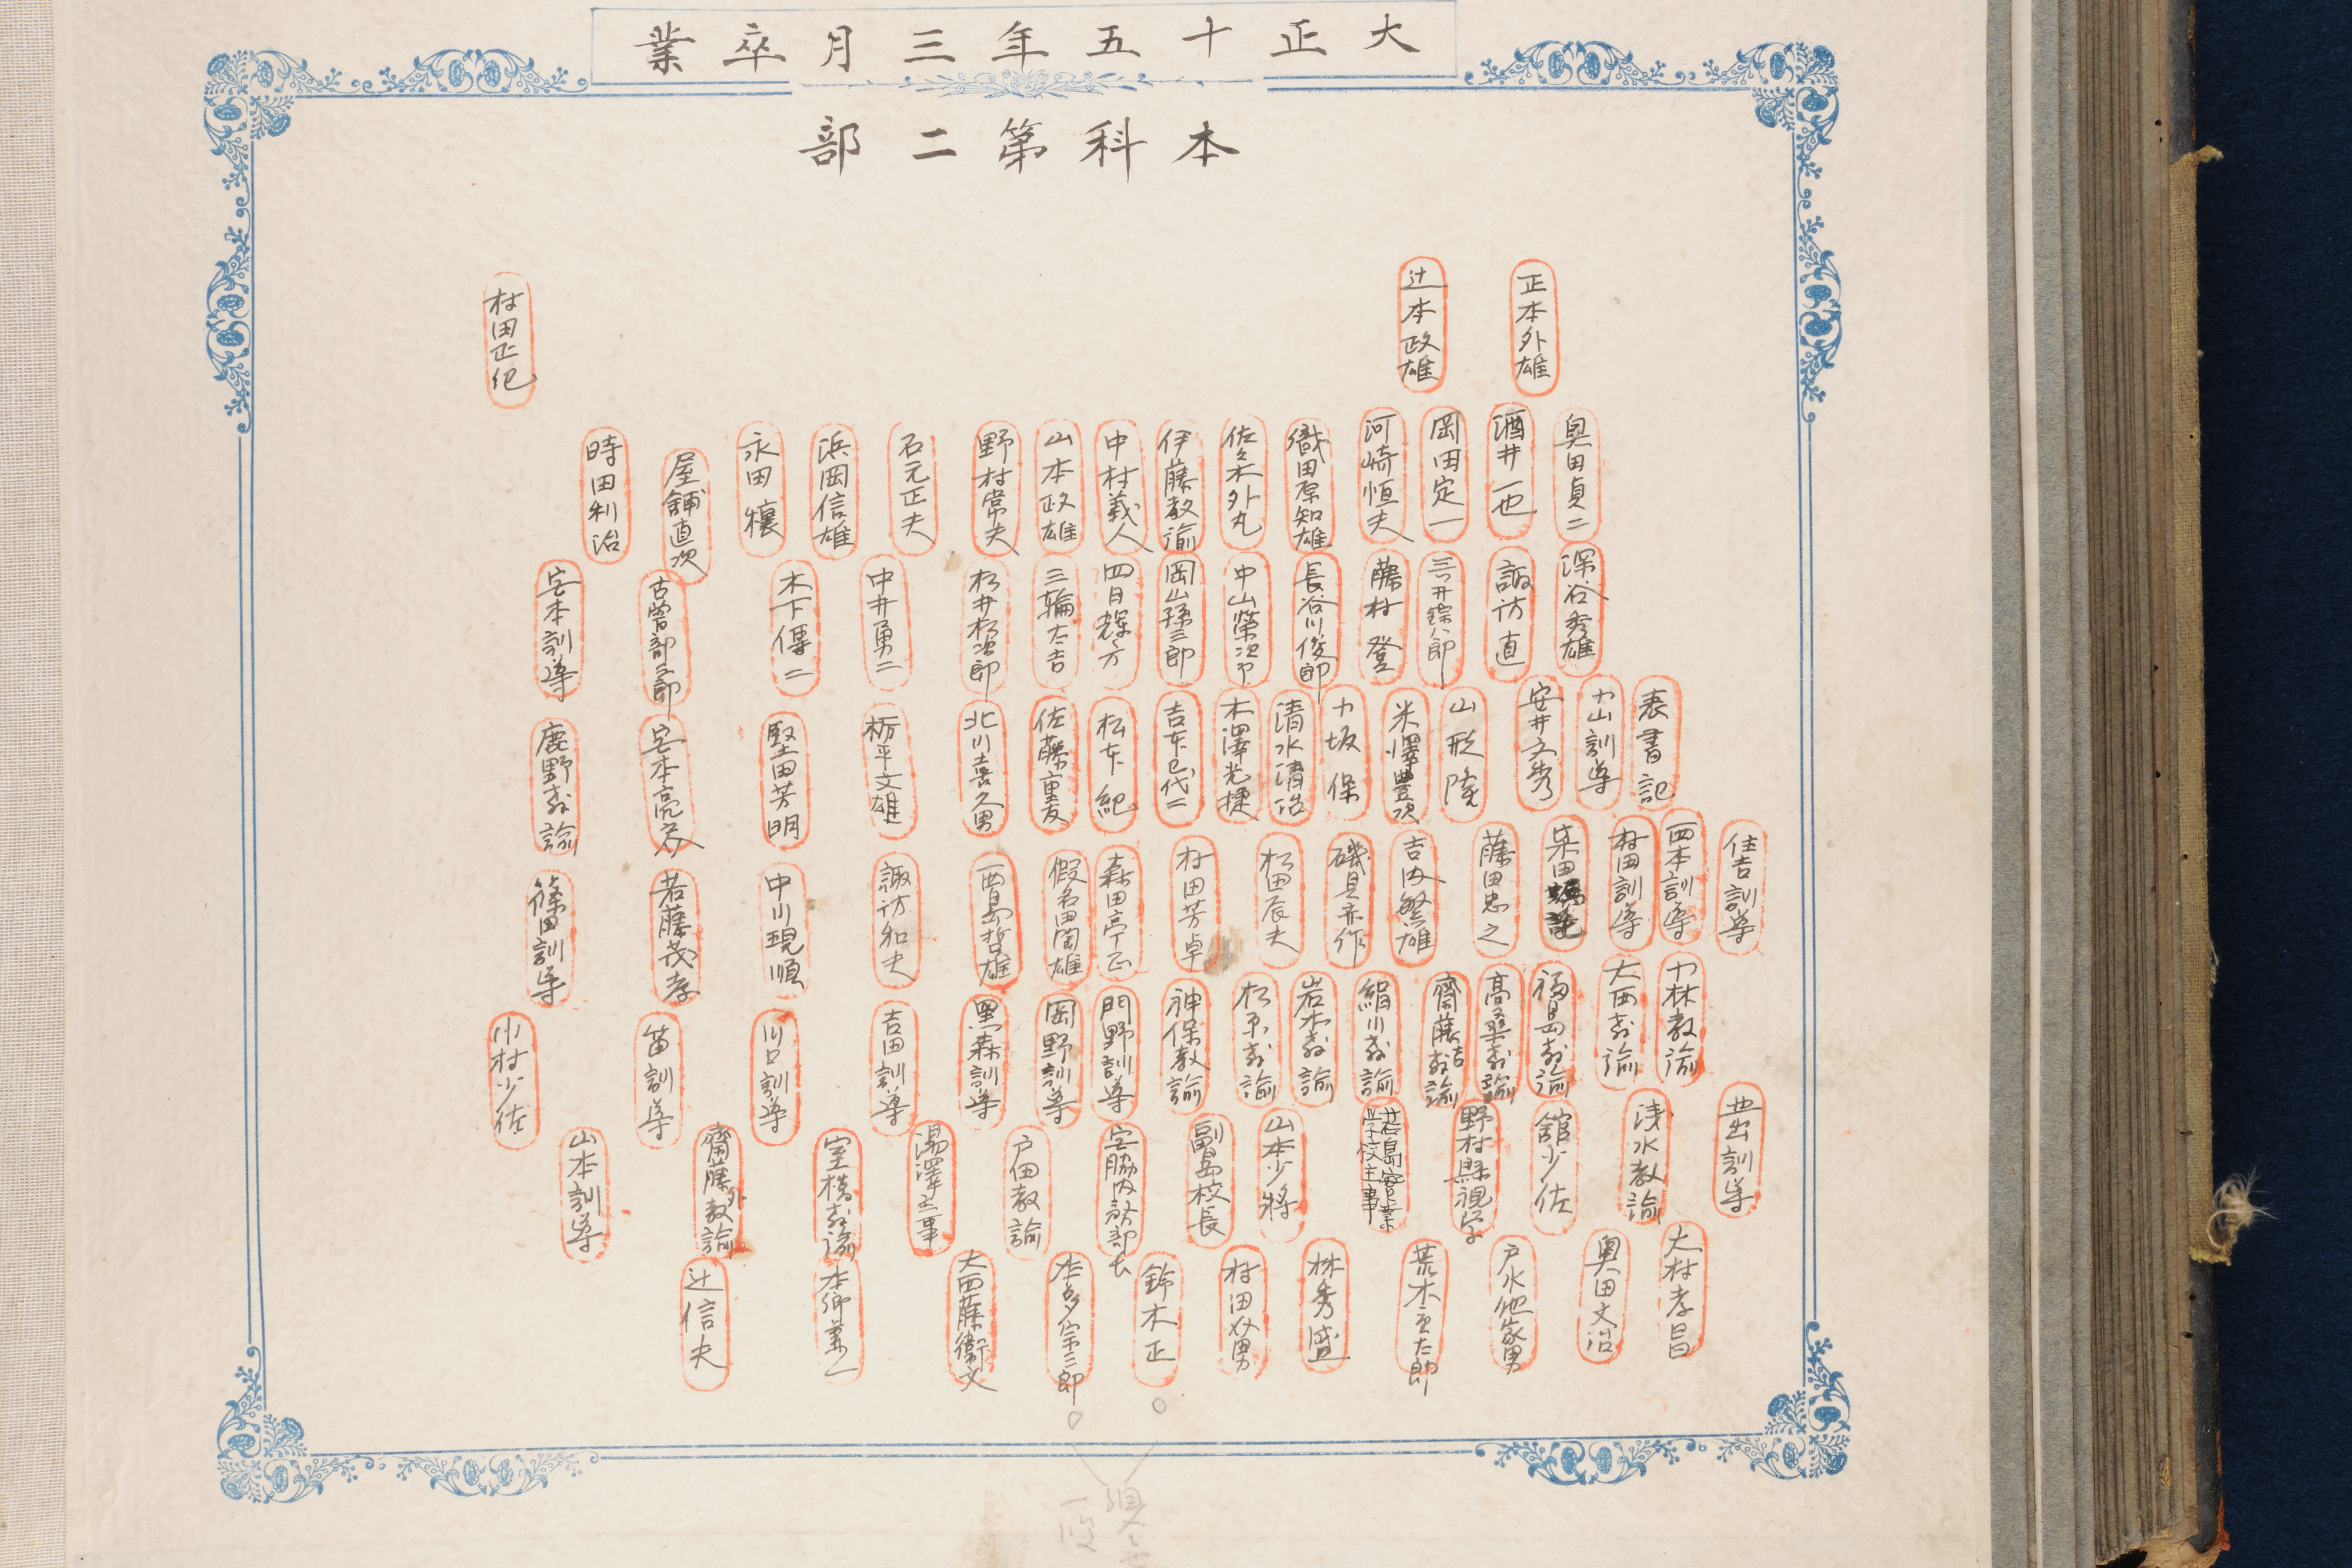 大正十五年三月卒業
本科第二部
正本外雄
辻本政雄
村田正紀
奥田貞二
酒井一也
岡田定一
河崎恒夫
織田原知雄
佐々木外丸
伊藤教諭
中村義人
山本政雄
野村常夫
石元正夫
浜岡信雄
永田穰
屋舗直次
時田利治
深谷秀雄
諏訪直
藤村登
長谷川俊郎
中山榮次郎
岡山孫三郎
四日輝方
三輪太吉
松井松次郎
中井勇二
木下傳二
宅本訓導
表書記
中山訓導
安井文秀
山形陸
米澤豊次
中坂保
清水清治
木澤光捷
吉本巳代二
松本紀
佐藤重友
北川喜久男
栃平文雄
堅田芳明
鹿野教諭
住吉訓導
西本訓導
村田訓導
柴田
藤田忠之
吉内繁雄
磯貝亦作
松田辰夫
村田芳卓
森田亭正
假名田閏雄
西島哲雄
諏訪和夫
中川現順
若藤茂孝
篠田訓導
中林教諭
大西教諭
福島教諭
高桑教諭
齋藤吉教諭
絹川教諭
岩木教諭
松原教諭
神保教諭
門野訓導
岡野訓導
黒森訓導
吉田訓導
川口訓導
苗訓導
小村少佐
西出訓導
浅水教諭
舘少佐
野村縣視学
若島實業学校主事
山本少將
副島校長
宮脇内務部長
戸田教諭
湯澤主事
室橫教諭
齋藤外教諭
山本訓導
大村孝昌
奥田文治
戸水他家男
荒木太郎
林秀盛
村田外男
鈴木正
本多宗三郎
大西藤衞文
本郷兼一
辻信夫